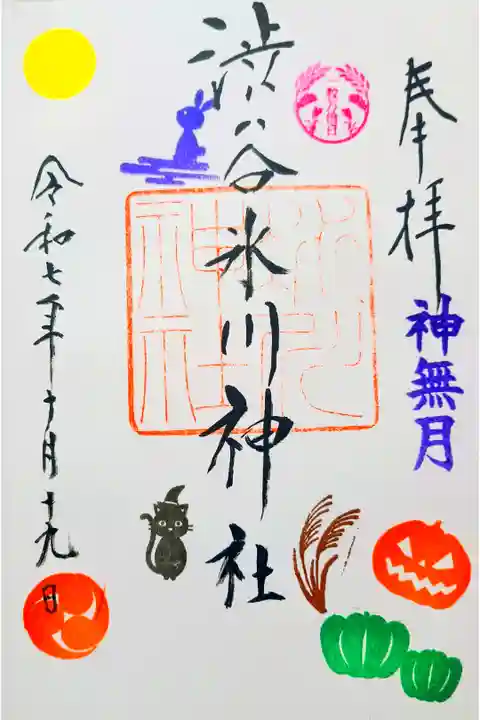 奉拝
神無月
渋谷氷川神社
令和七年十月十九日